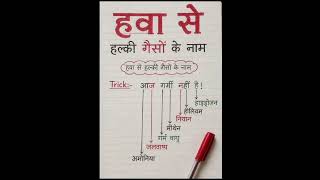 हवा से
हल्की गैसों के नाम
हवा से हल्की गैसों के नाम
Trick:- आज गर्मी नहीं है !
हाइड्रोजन
हीलियम
नियान
मीथेन
गर्म वायु
जलवाष्प
अमोनिया